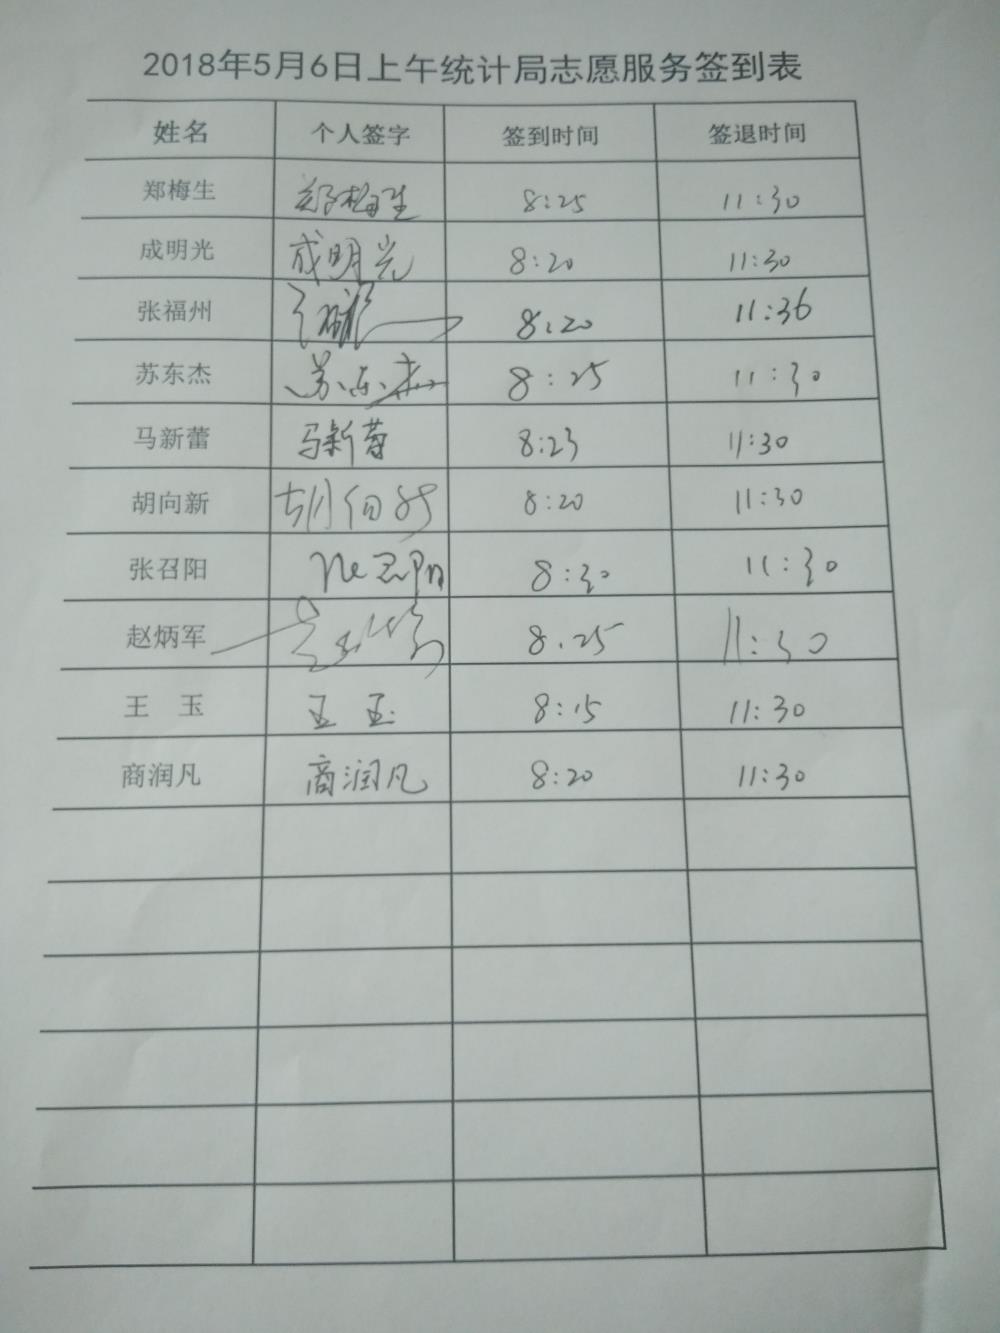 2018年5月6日上午统计局志愿服务签到表
姓名 个人签字 签到时间 签退时间
郑梅生 郑梅生 8:25 11:30
成明光 成明光 8:20 11:30
张福州 8:20 11:36
苏东杰 苏东杰 8:25 11:30
马新蕾 马新蕾 8:23 11:30
胡向新 胡向新 8:20 11:30
张召阳 8:30 11:30
赵炳军 8.25 11:30
王 玉 王玉 8:15 11:30
商润凡 商润凡 8:20 11:30